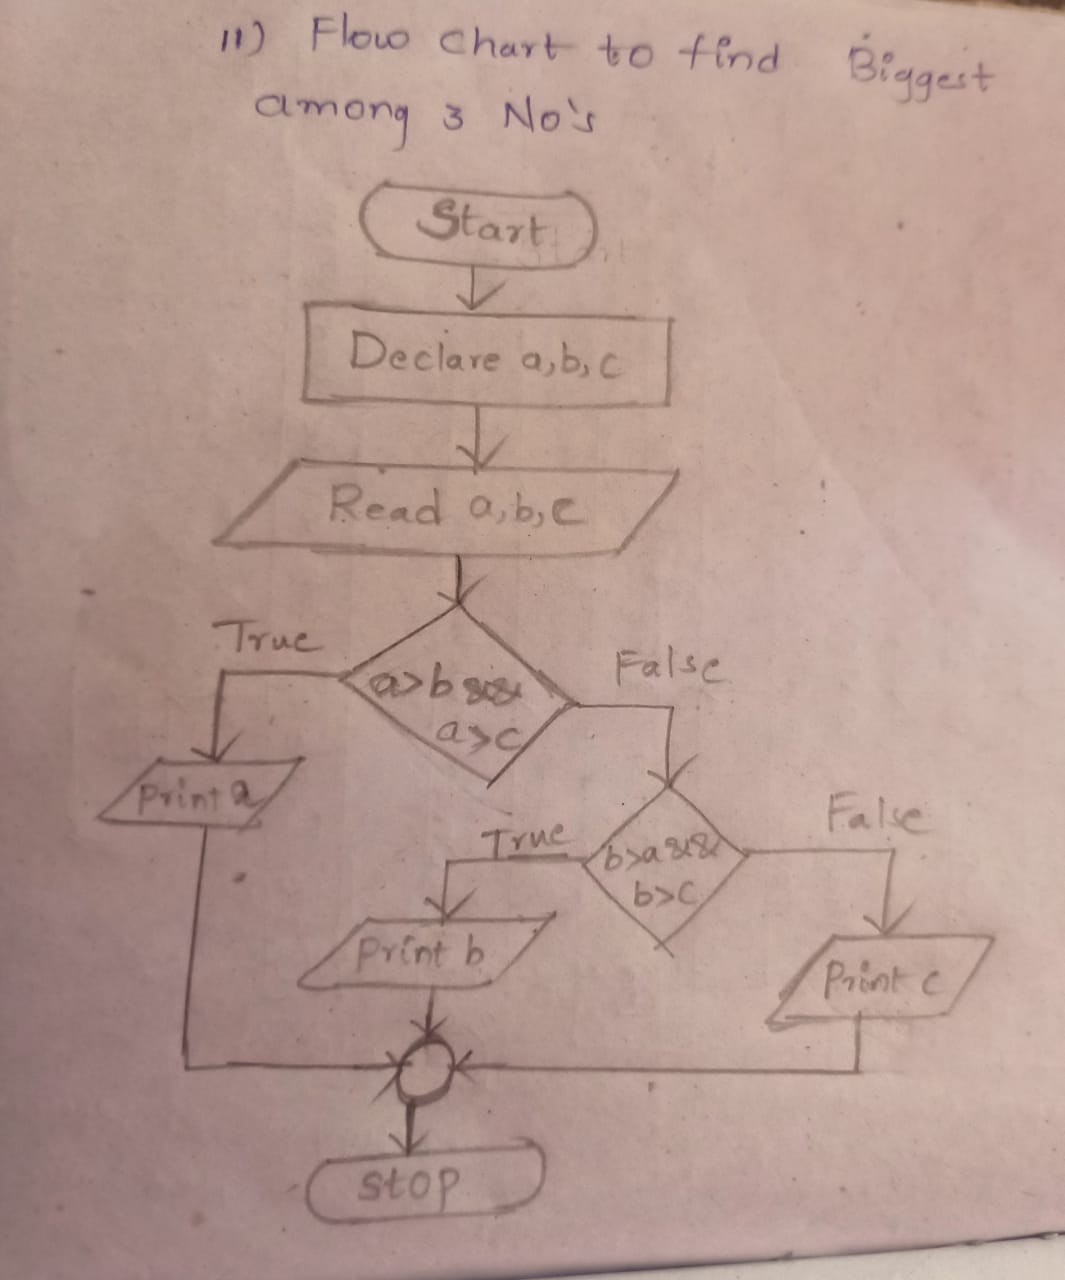 11) Flow chart to find Biggest
among 3 No's
Start
Declare a,b,c
Read a,b,c
True
False
a>b &&
a>c
Print a
True
False
b>a &&
b>c
Print b
Print c
stop